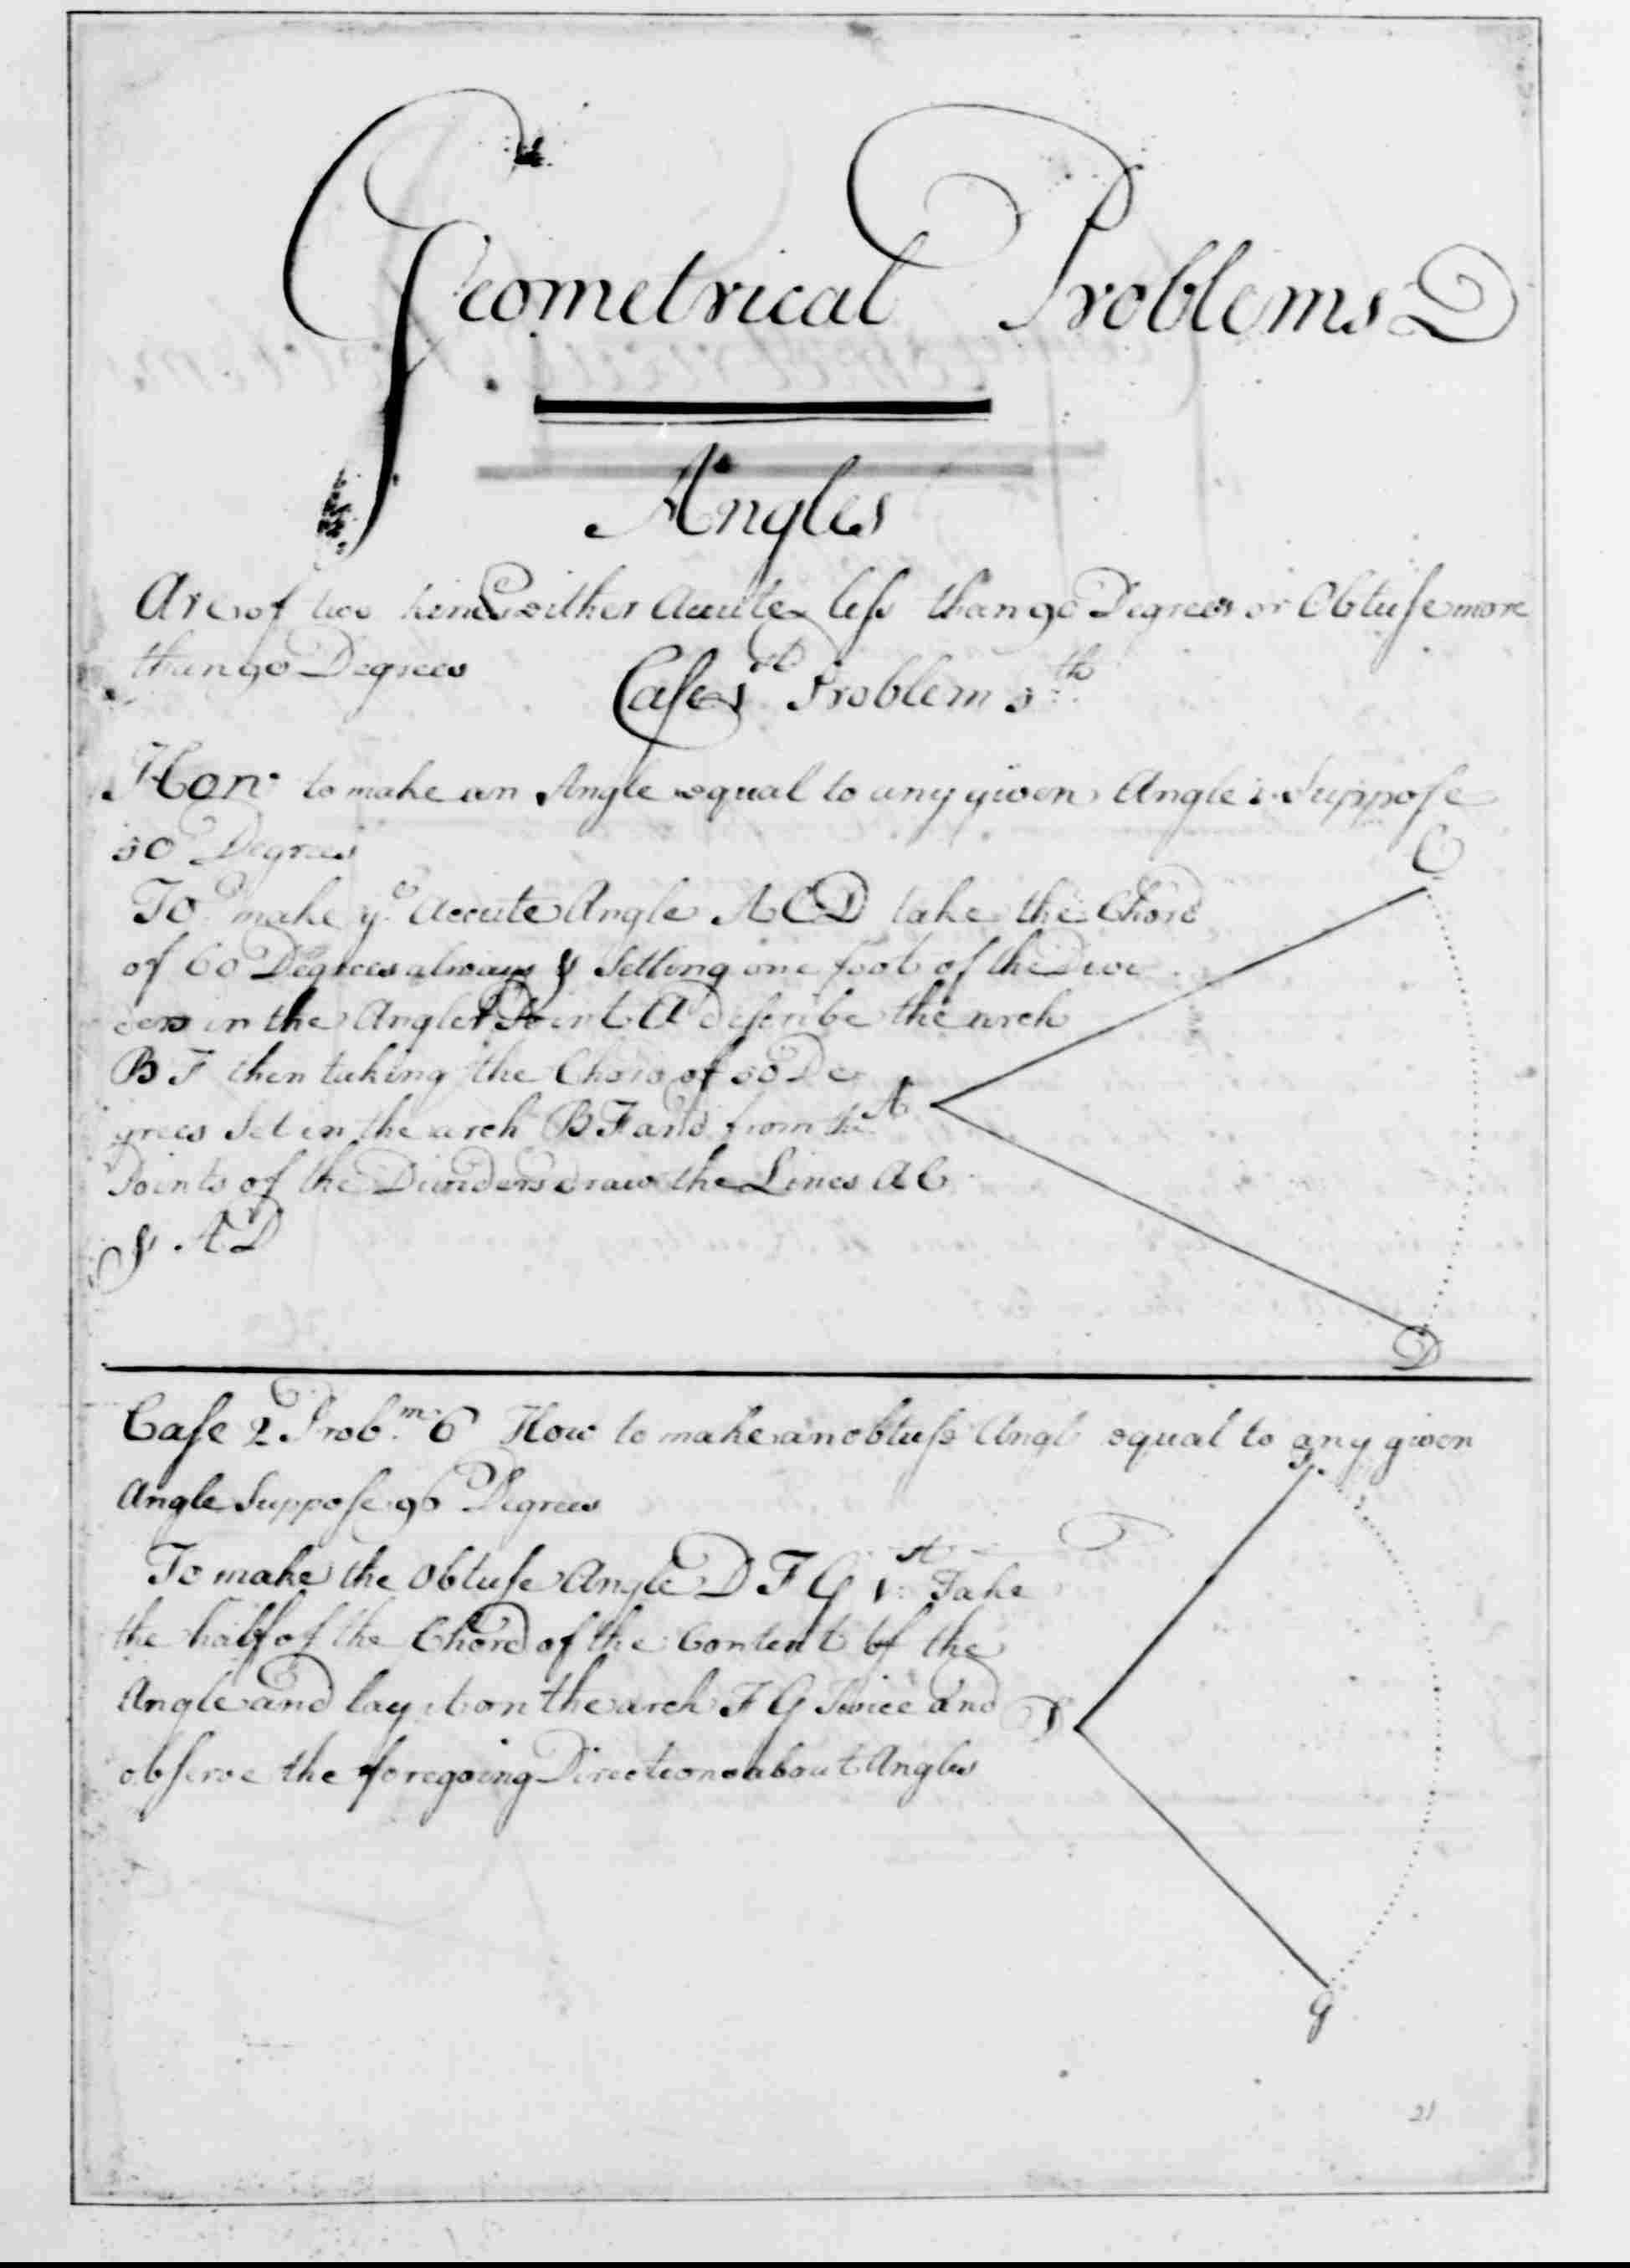 Geometrical Problems
Angles
Are of two kinds either Accute less than 90 Degrees or Obtuse more
than 90 Degrees
Case 1st Problem 5th
How to make an Angle equal to any given Angle Suppose
50 Degrees
C
To make ye Accute Angle ACD take the Chord
of 60 Degrees always & Setting one foot of the Divi
ders in the Angler Point A describe the arch
BF then taking the Chord of 50 De
grees Set in the arch BF and from the
A
Points of the Dividers draw the Lines AC
& AD
D
Case 2 Probm 6 How to make an obtuse Angl equal to any given
Angle Suppose 96 Degrees
To make the Obtuse Angle DFG 1st Take
the half of the Chord of the Content of the
Angle and lay it on the arch FG Twice and
D
observe the foregoing Directions about Angles
G
21